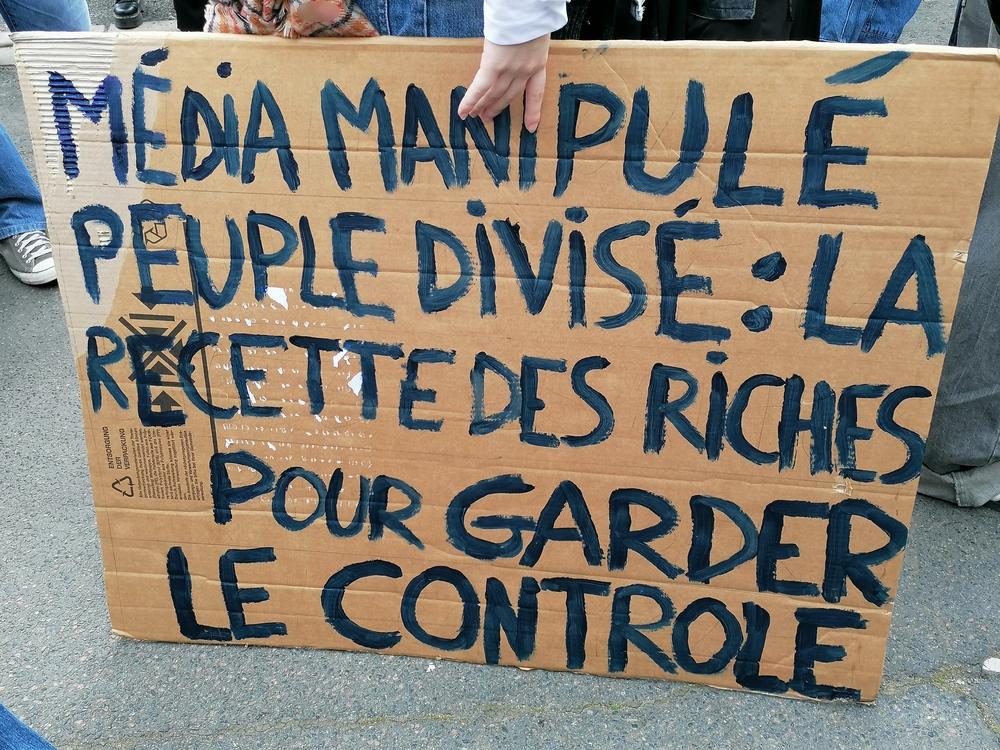 MÉDIA MANIPULÉ
PEUPLE DIVISÉ : LA
RECETTE DES RICHES
POUR GARDER
LE CONTROLE
ENTSORGUNG
DER
VERPACKUNG